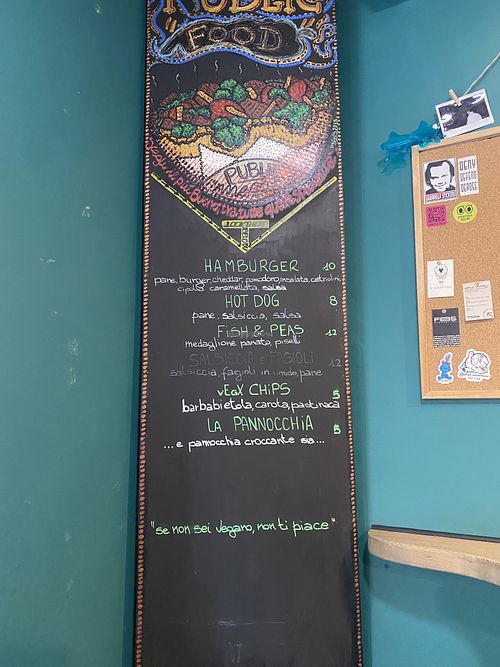 FOOD
PUBLIC
HAMBURGER 10
pane, burger, cheddar, pomodoro, insalata, cetriolini,
cipolla caramellata, salsa
HOT DOG 8
pane, salsiccia, salsa
FiSH & PEAS 12
medaglione panato, piselli
SALSICCIA e FAGIOLI 12
salsiccia, fagioli in umido, pane
vEGX CHiPS 5
barbabietola, carota, pastinaca
LA PANNOCCHiA 5
...e pannocchia croccante sia...
"se non sei vegano, non ti piace"
DENY
DEFEND
DEPOSE